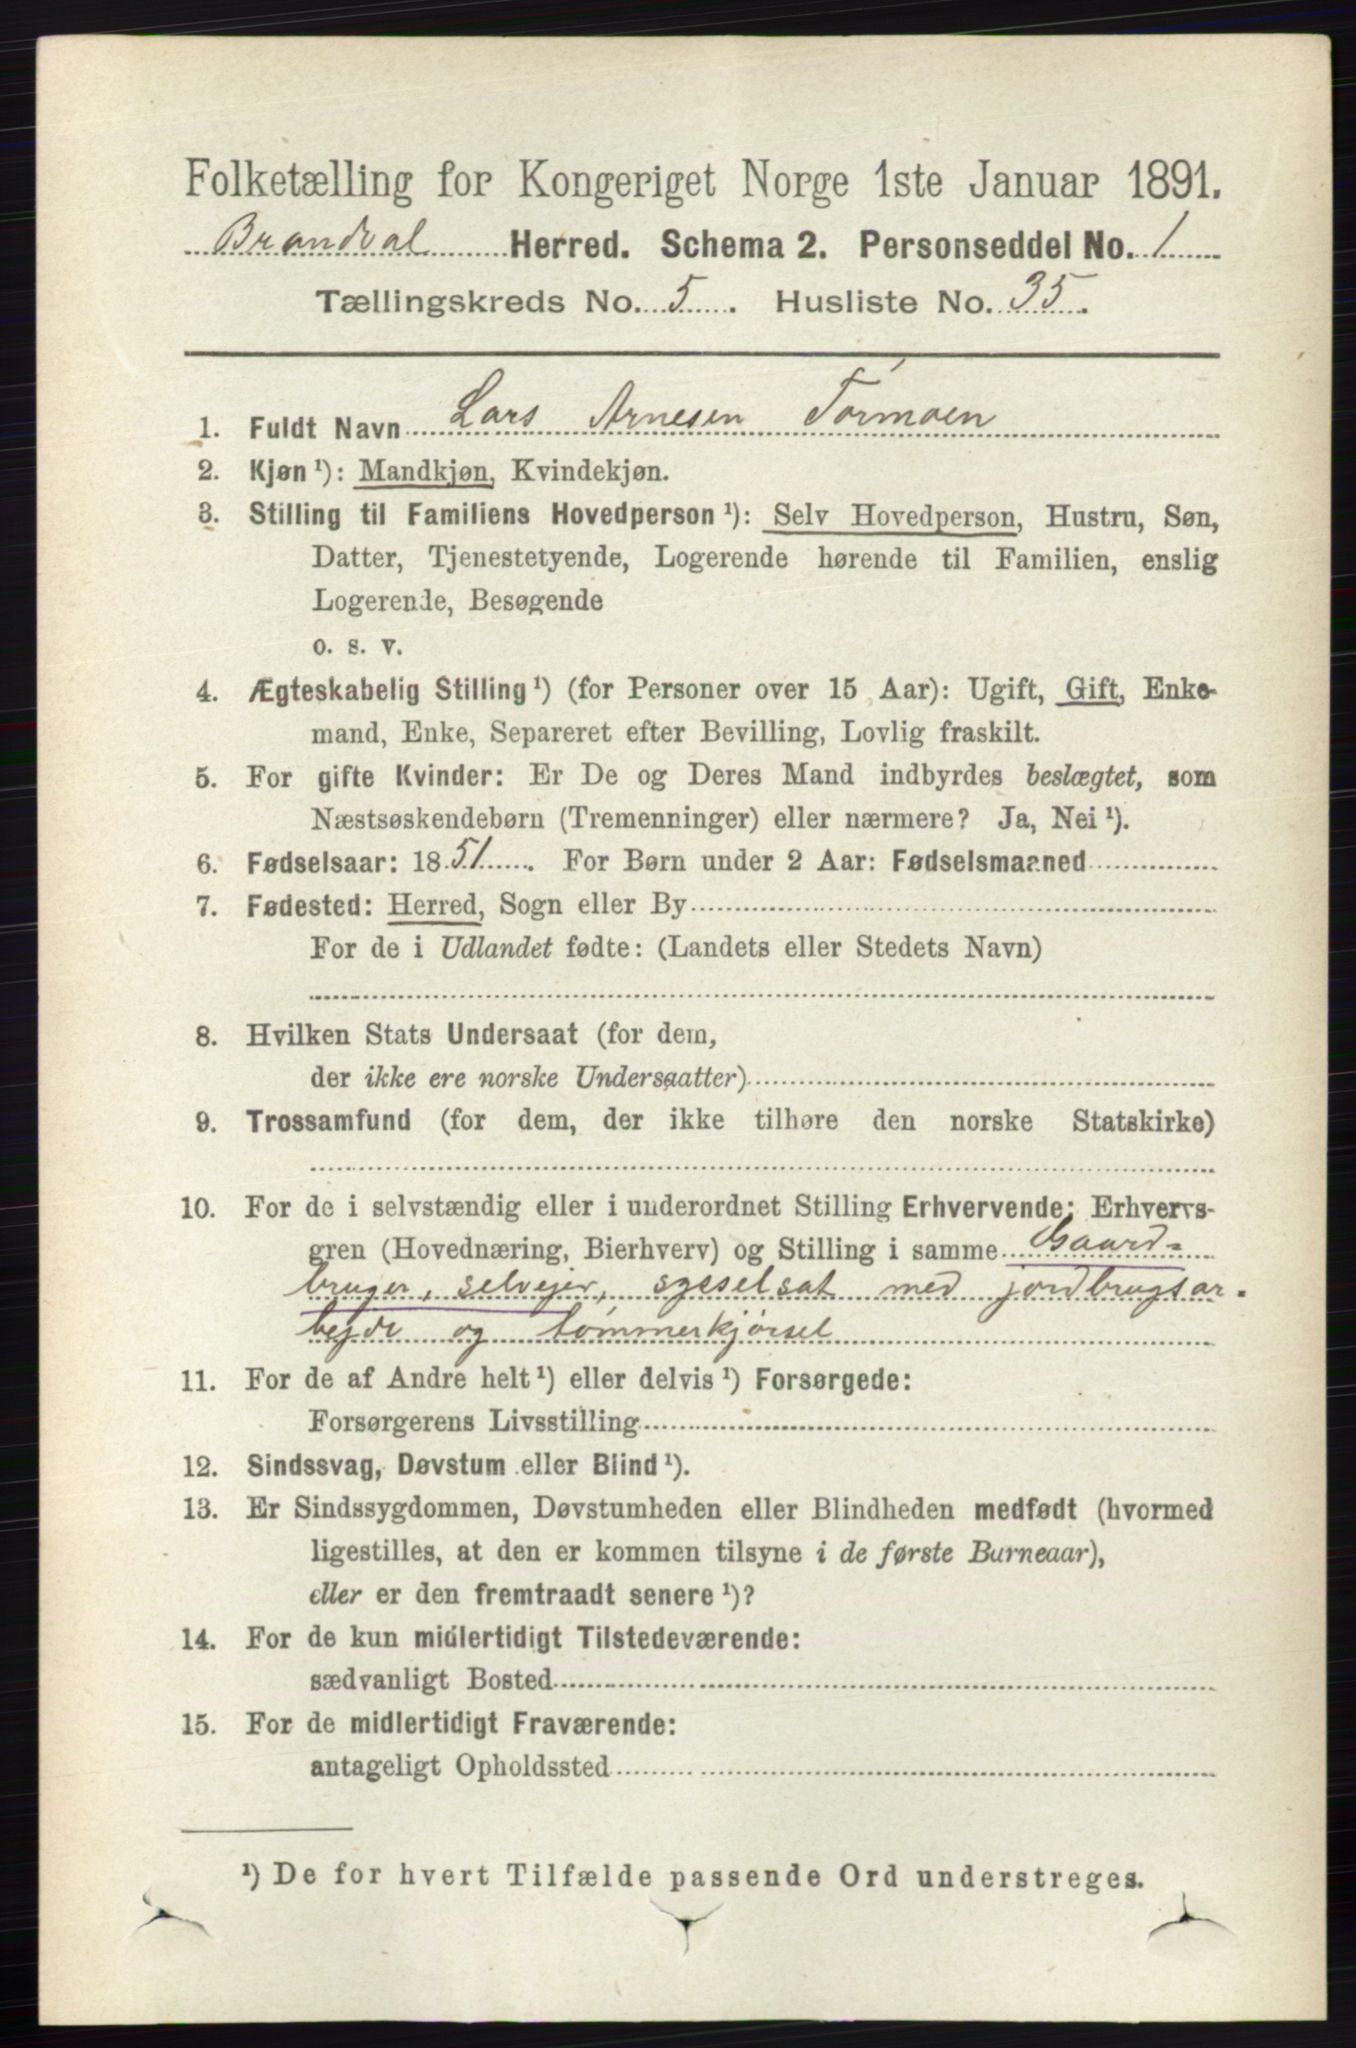 Folketælling for Kongeriget Norge 1ste Januar 1891.
Brandval Herred. Schema 2. Personseddel No. 1
Tællingskreds No. 5. Husliste No. 35.
1. Fuldt Navn Lars Arnesen Tormoen
2. Kjøn ¹): Mandkjøn, Kvindekjøn.
3. Stilling til Familiens Hovedperson ¹): Selv Hovedperson, Hustru, Søn,
Datter, Tjenestetyende, Logerende hørende til Familien, enslig
Logerende, Besøgende
o. s. v.
4. Ægteskabelig Stilling ¹) (for Personer over 15 Aar): Ugift, Gift, Enke-
mand, Enke, Separeret efter Bevilling, Lovlig fraskilt.
5. For gifte Kvinder: Er De og Deres Mand indbyrdes beslægtet, som
Næstsøskendebørn (Tremenninger) eller nærmere? Ja, Nei ¹).
6. Fødselsaar: 1851. For Børn under 2 Aar: Fødselsmaaned
7. Fødested: Herred, Sogn eller By
For de i Udlandet fødte: (Landets eller Stedets Navn)
8. Hvilken Stats Undersaat (for dem,
der ikke ere norske Undersaatter)
9. Trossamfund (for dem, der ikke tilhøre den norske Statskirke)
10. For de i selvstændig eller i underordnet Stilling Erhvervende: Erhvervs-
gren (Hovednæring, Bierhverv) og Stilling i samme Gaard-
bruger, selvejer, sysselsat med jordbrugsar-
bejde og tømmerkjørsel
11. For de af Andre helt ¹) eller delvis ¹) Forsørgede:
Forsørgerens Livsstilling
12. Sindssvag, Døvstum eller Blind ¹).
13. Er Sindssygdommen, Døvstumheden eller Blindheden medfødt (hvormed
ligestilles, at den er kommen tilsyne i de første Barneaar),
eller er den fremtraadt senere ¹)?
14. For de kun midlertidigt Tilstedeværende:
sædvanligt Bosted
15. For de midlertidigt Fraværende:
antageligt Opholdssted
¹) De for hvert Tilfælde passende Ord understreges.